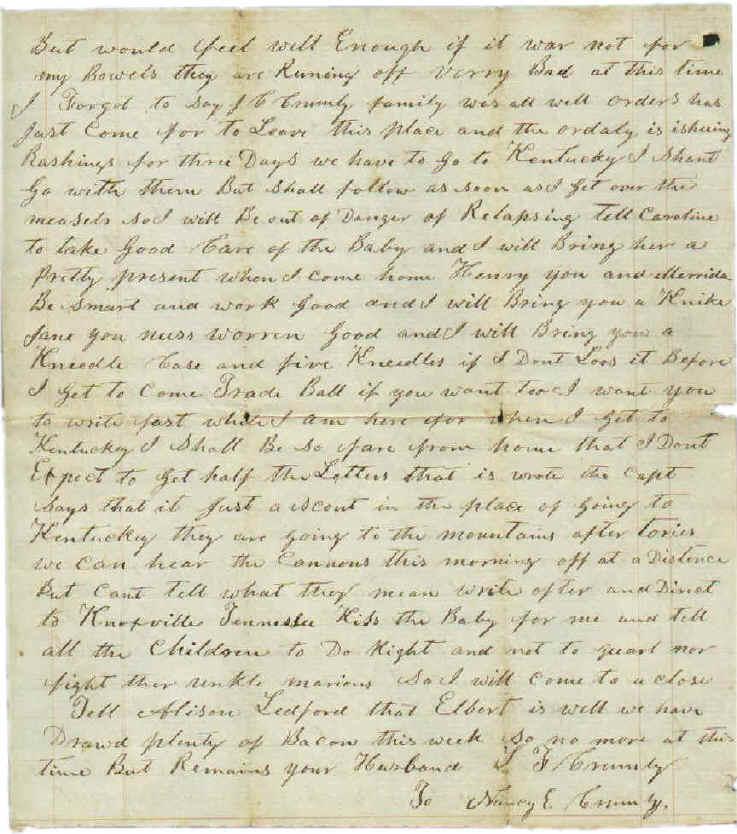 But would feel well Enough if it war not for
my Bowels they are Runing off verry Bad at this time
I Forgot to say J C Crumly family was all well orders has
just Come for to Leave this place and the ordaly is ishuing
Rashings for three Days we have to Go to Kentucky I Shant
Go with them But Shall follow as soon as I Get over the
measels so I will Be out of Danger of Relapsing tell Caroline
to take Good Care of the Baby and I will Bring her a
Pretty present when I come home Henry you and Merrida
Be Smart and work Good and I will Bring you a Knife
Jane you nuss Worren Good and I will Bring you a
Kneedle Case and five Kneedles if I Dont Loos it Before
I Get to Come Trade Ball if you want too I want you
to write fast while I am here for when I Get to
Kentuckey I Shall Be so fare from home that I Dont
Expect to Get half the Letters that is wrote the Capt
Says that it Just a scout in the place of Going to
Kentuckey they are Going to the mountains after tories
we can hear the Cannons this morning off at a Distence
But Cant tell what they mean write ofter and Direct
to Knoxville Tennessee Kiss the Baby for me and tell
all the Children to Do Right and not to quarl nor
fight ther unkle marions So I will Come to a close
Tell Alison Ledford that Elbert is well we have
Drawd plenty of Bacon this week So no more at this
time But Remains your Husband F Crumly
To Nancy E. Crumly.